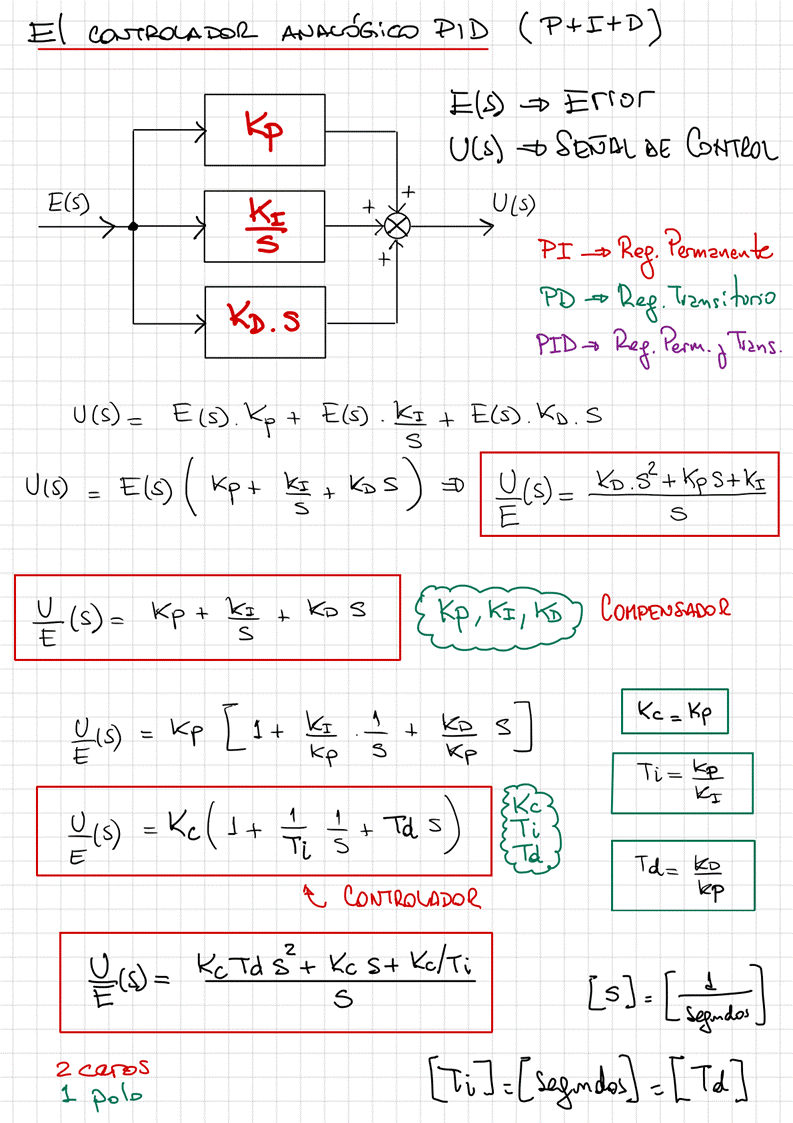 El CONTROLADOR ANALÓGICO PID (P+I+D)
E(s) ⇒ Error
U(s) ⇒ SEÑAL DE CONTROL
Kp
E(s)
KI/S
+
+
+
U(s)
KD.S
PI ⇒ Reg. Permanente
PD ⇒ Reg. Transitorio
PID ⇒ Reg. Perm. y Trans.
U(s) = E(s).Kp + E(s).KI/S + E(s).KD.S
U(s) = E(s)(Kp + KI/S + KD S) ⇒ U/E(s) = (KD.S² + Kp S + KI)/S
U/E(s) = Kp + KI/S + KD S
Kp, KI, KD
COMPENSADOR
U/E(s) = Kp [1 + KI/Kp . 1/S + KD/Kp S]
Kc = Kp
Ti = Kp/KI
U/E(s) = Kc(1 + 1/Ti 1/S + Td S)
Kc
Ti
Td
Td = KD/Kp
CONTROLADOR
U/E(s) = (Kc Td S² + Kc S + Kc/Ti)/S
[S] = [1/segundos]
2 ceros
1 polo
[Ti] = [segundos] = [Td]